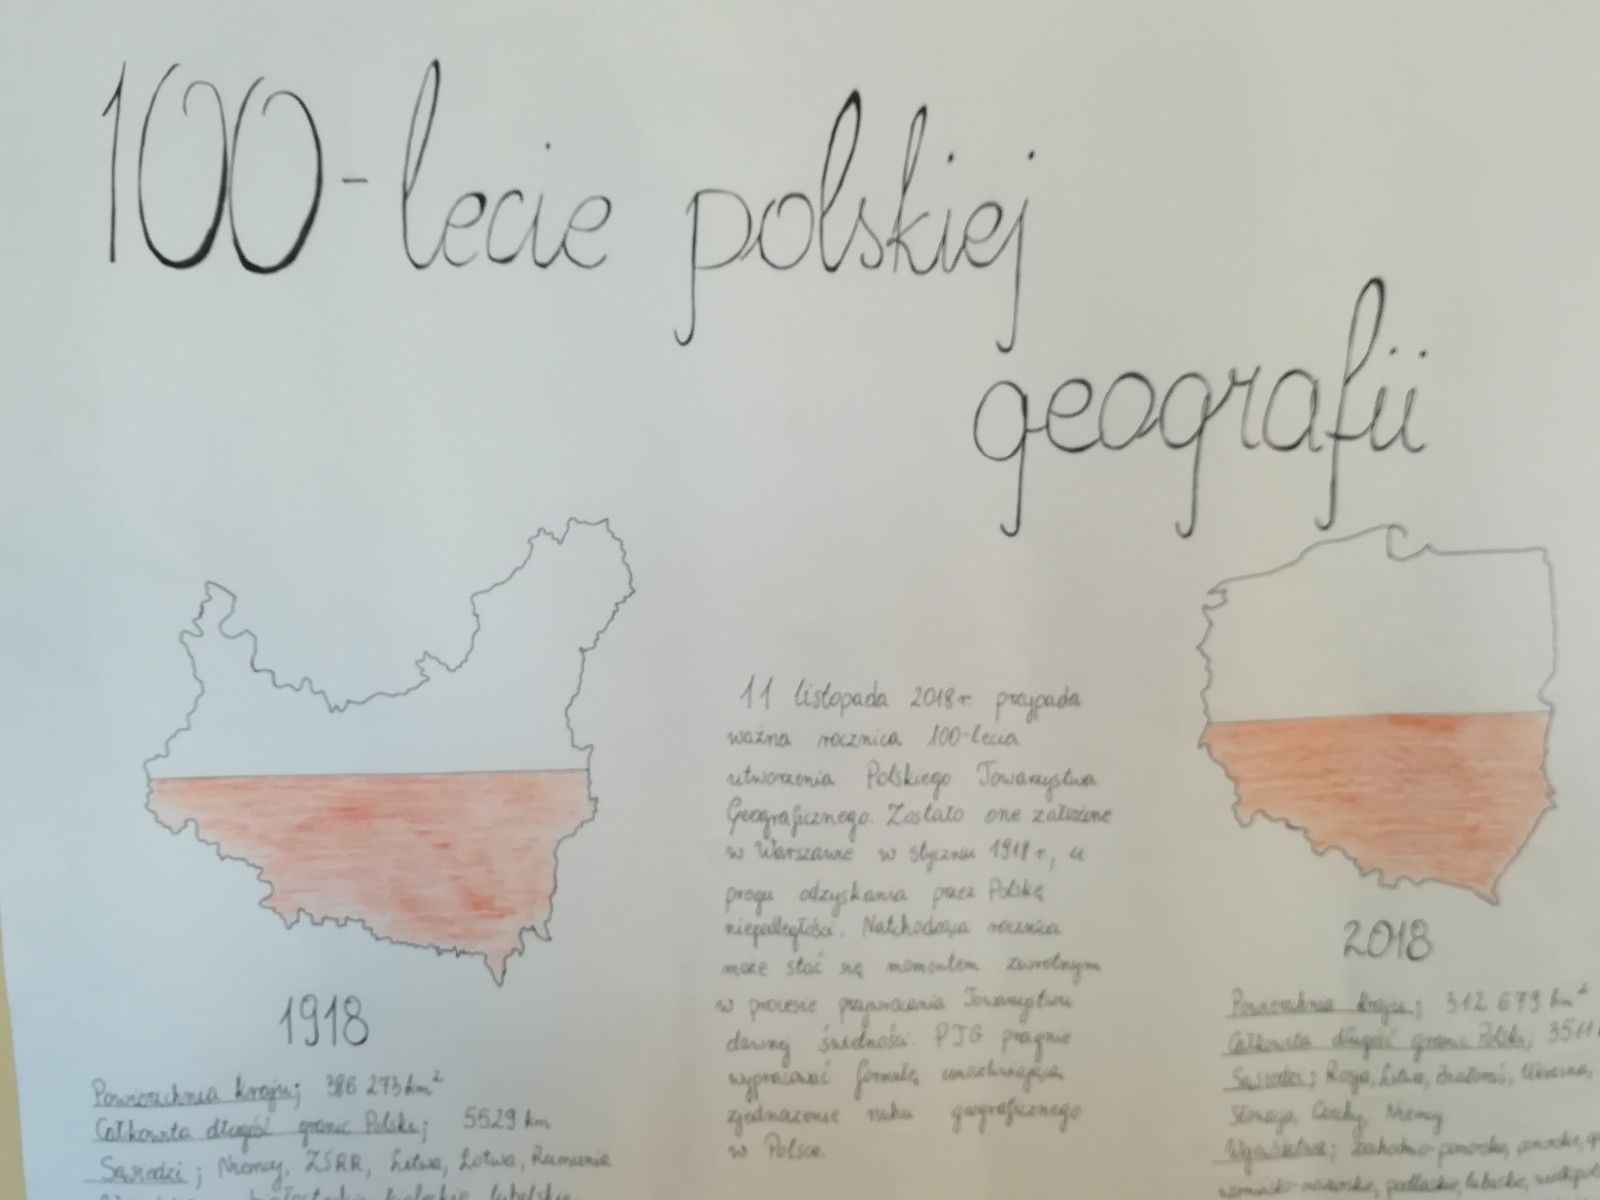 100-lecie polskiej
geografii
11 listopada 2018 r. przypada
ważna rocznica 100-lecia
utworzenia Polskiego Towarzystwa
Geograficznego. Zostało one założone
w Warszawie w styczniu 1918 r., u
progu odzyskania przez Polskę
niepodległości. Nadchodząca rocznica
może stać się momentem zwrotnym
w procesie przywracania Towarzystwu
dawnej świetności. PTG pragnie
wypracować formułę umożliwiającą
zjednoczenie ruchu geograficznego
w Polsce.
1918
Powierzchnia kraju; 386 273 km²
Całkowita długość granic Polski; 5529 km
Sąsiedzi; Niemcy, ZSRR, Litwa, Łotwa, Rumunia
białostockie, kieleckie, lubelskie,
2018
Powierzchnia kraju; 312 679 km²
Całkowita długość granic Polski; 3511
Sąsiedzi; Rosja, Litwa, Białoruś, Ukraina,
Słowacja, Czechy, Niemcy
Województwa; Zachodnio-pomorskie, pomorskie,
warmińsko-mazurskie, podlaskie, lubuskie,